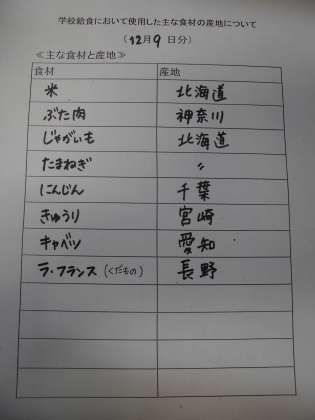 学校給食において使用した主な食材の産地について
(12月9日分)
≪主な食材と産地≫
食材 産地
米 北海道
ぶた肉 神奈川
じゃがいも 北海道
たまねぎ 〃
にんじん 千葉
きゅうり 宮崎
キャベツ 愛知
ラ・フランス(くだもの) 長野